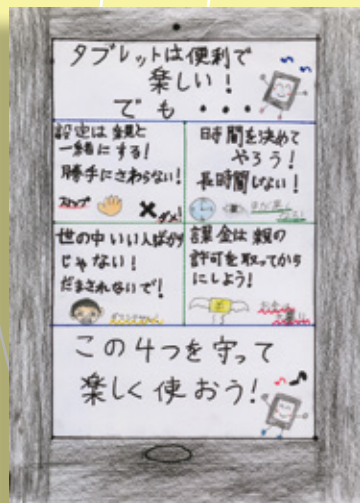 タブレットは便利で
楽しい！
でも・・・
設定は親と
一緒にする！
勝手にさわらない！
ストップ
ダメ！
時間を決めて
やろう！
長時間しない！
世の中いい人ばかり
じゃない！
だまされないで！
課金は親の
許可を取ってから
にしよう！
お金は
この4つを守って
楽しく使おう！